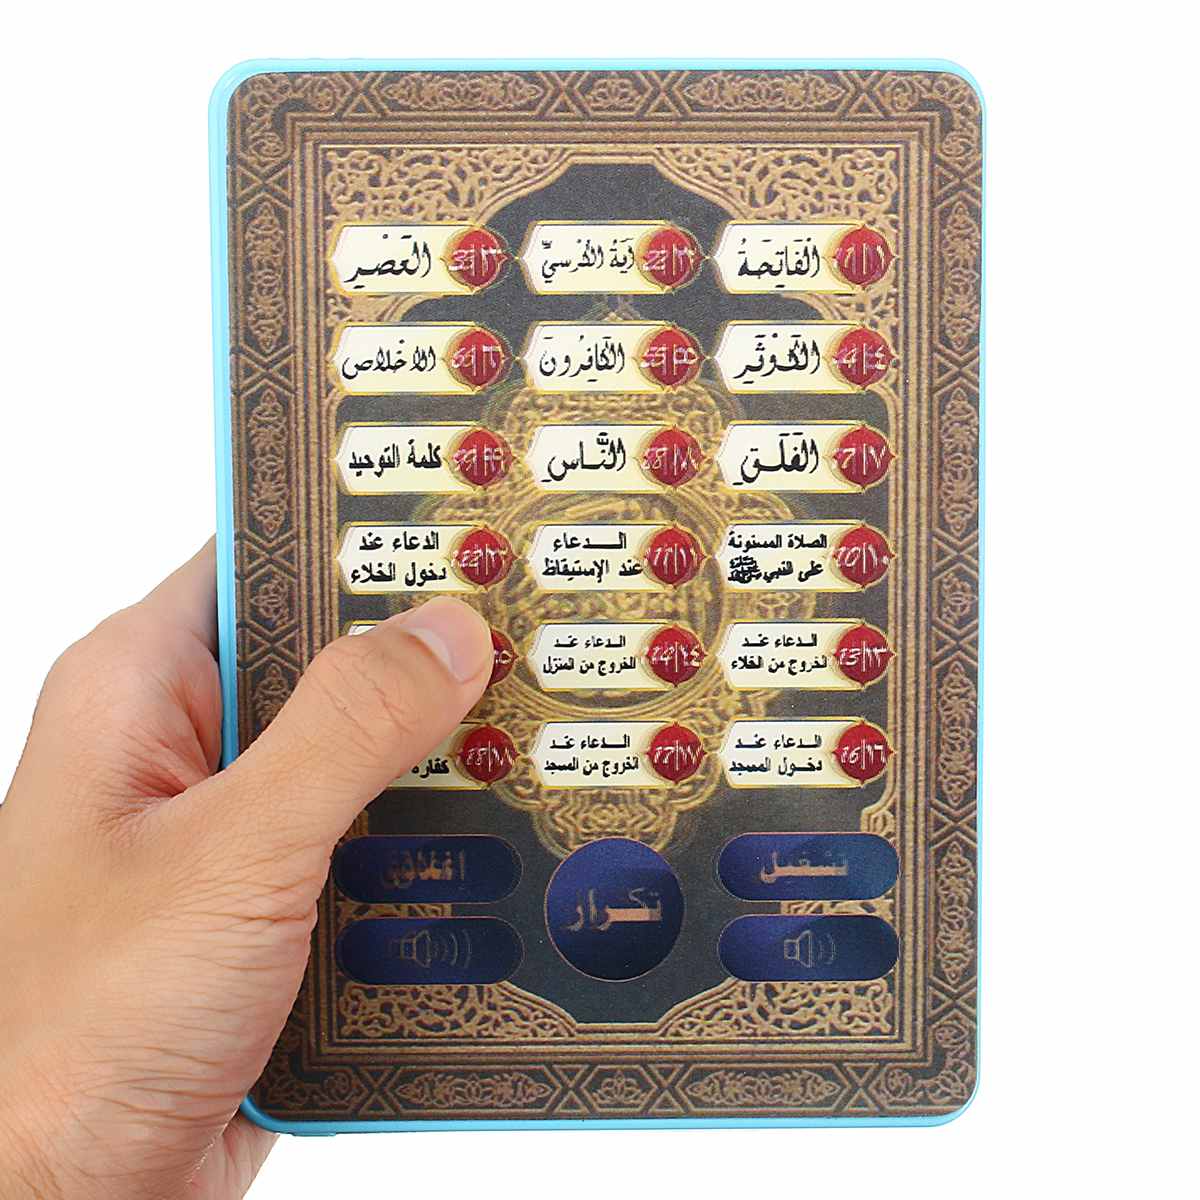 الْفَاتِحَةُ
آيَةُ الْكُرْسِيِّ
الْعَصْرِ
الْكَوْثَرِ
الْكَافِرُونَ
الاخْلاص
الفَلَقِ
النَّاسِ
كلمة التوحيد
الصلاة المسنونة
على النبي ﷺ
١٠|10
الدعاء
عند الإستيقاظ
١١|11
الدعاء عند
دخول الخلاء
الدعاء عند
الخروج من الخلاء
١٣|13
الدعاء عند
الخروج من المنزل
١٤|14
الدعاء عند
دخول المسجد
١٦|16
الدعاء عند
الخروج من المسجد
١٧|17
كفارة
١٨|18
تشغيل
اغلاق
تكرار